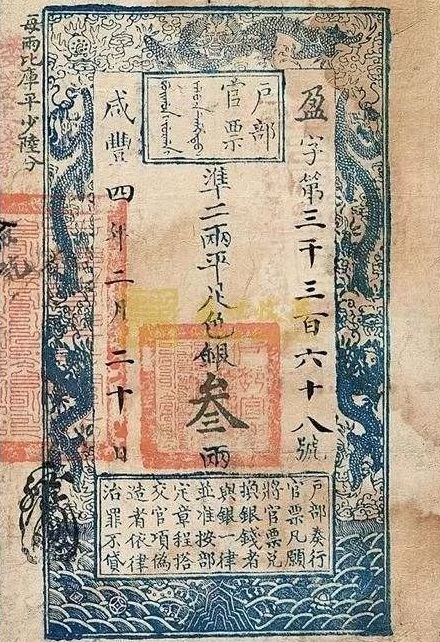 盈字第三千三百六十八號
戶部
官票
準二兩平足色銀叁兩
咸豐四年二月二十日
每兩比庫平少陸分
戶部奏行
官票凡願
將官票兌
換銀錢者
與銀一律
並准按部
定章程搭
交官項偽
造者依律
治罪不貸